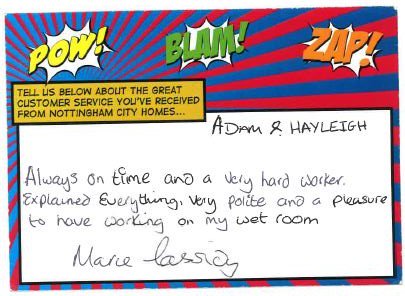 POW!
BLAM!
ZAP!
TELL US BELOW ABOUT THE GREAT
CUSTOMER SERVICE YOU'VE RECEIVED
FROM NOTTINGHAM CITY HOMES...
ADAM & HAYLEIGH
Always on time and a very hard worker.
Explained Everything, Very Polite and a pleasure
to have working on my wet room
Marie Cassidy